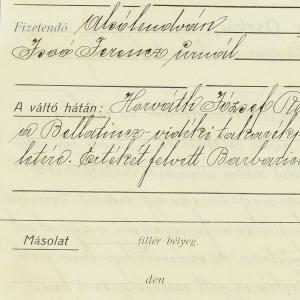 Fizetendő Alsólendván
Isoó Ferencz úrnál
A váltó hátán: Horváth József
a Bellatincz vidéki takarék
letéré. Értékét felvett Barbarics
Másolat fillér bélyeg.
den